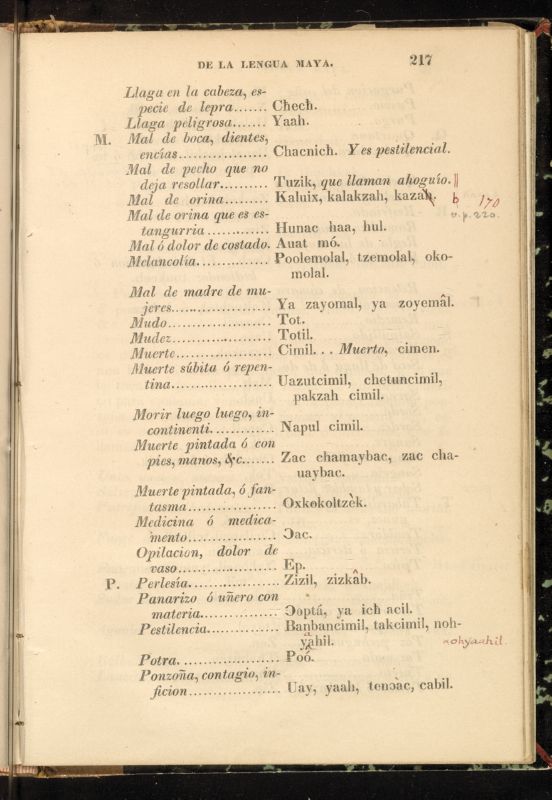 DE LA LENGUA MAYA. 217
Llaga en la cabeza, es-
pecie de lepra....... Cħecħ.
Llaga peligrosa....... Yaah.
M. Mal de boca, dientes,
encías................... Chacnich. Y es pestilencial.
Mal de pecho que no
deja resollar.......... Tuzik, que llaman ahoguío. ||
Mal de orina.......... Kaluix, kalakzah, kazah. b 170
Mal de orina que es es- v. p. 220.
tangurria ............. Hunac haa, hul.
Mal ó dolor de costado. Auat mó.
Melancolía.............. Poolemolal, tzemolal, oko-
molal.
Mal de madre de mu-
jeres..................... Ya zayomal, ya zoyemâl.
Mudo..................... Tot.
Mudez.................... Totil.
Muerte................... Cimil... Muerto, cimen.
Muerte súbita ó repen-
tina...................... Uazutcimil, chetuncimil,
pakzah cimil.
Morir luego luego, in-
continenti............. Napul cimil.
Muerte pintada ó con
pies, manos, &c....... Zac chamaybac, zac cha-
uaybac.
Muerte pintada, ó fan-
tasma................... Oxkokoltzèk.
Medicina ó medica-
mento................... Ɔac.
Opilacion, dolor de
vaso...................... Ep.
P. Perlesía.................. Zizil, zizkâb.
Panarizo ó uñero con
materia................. Ɔoptá, ya icħ acil.
Pestilencia.............. Banbancimil, takcimil, noh-
yahil. nohyaahil.
Potra..................... Poó.
Ponzoña, contagio, in-
ficion.................... Uay, yaah, tenɔàc, cabil.